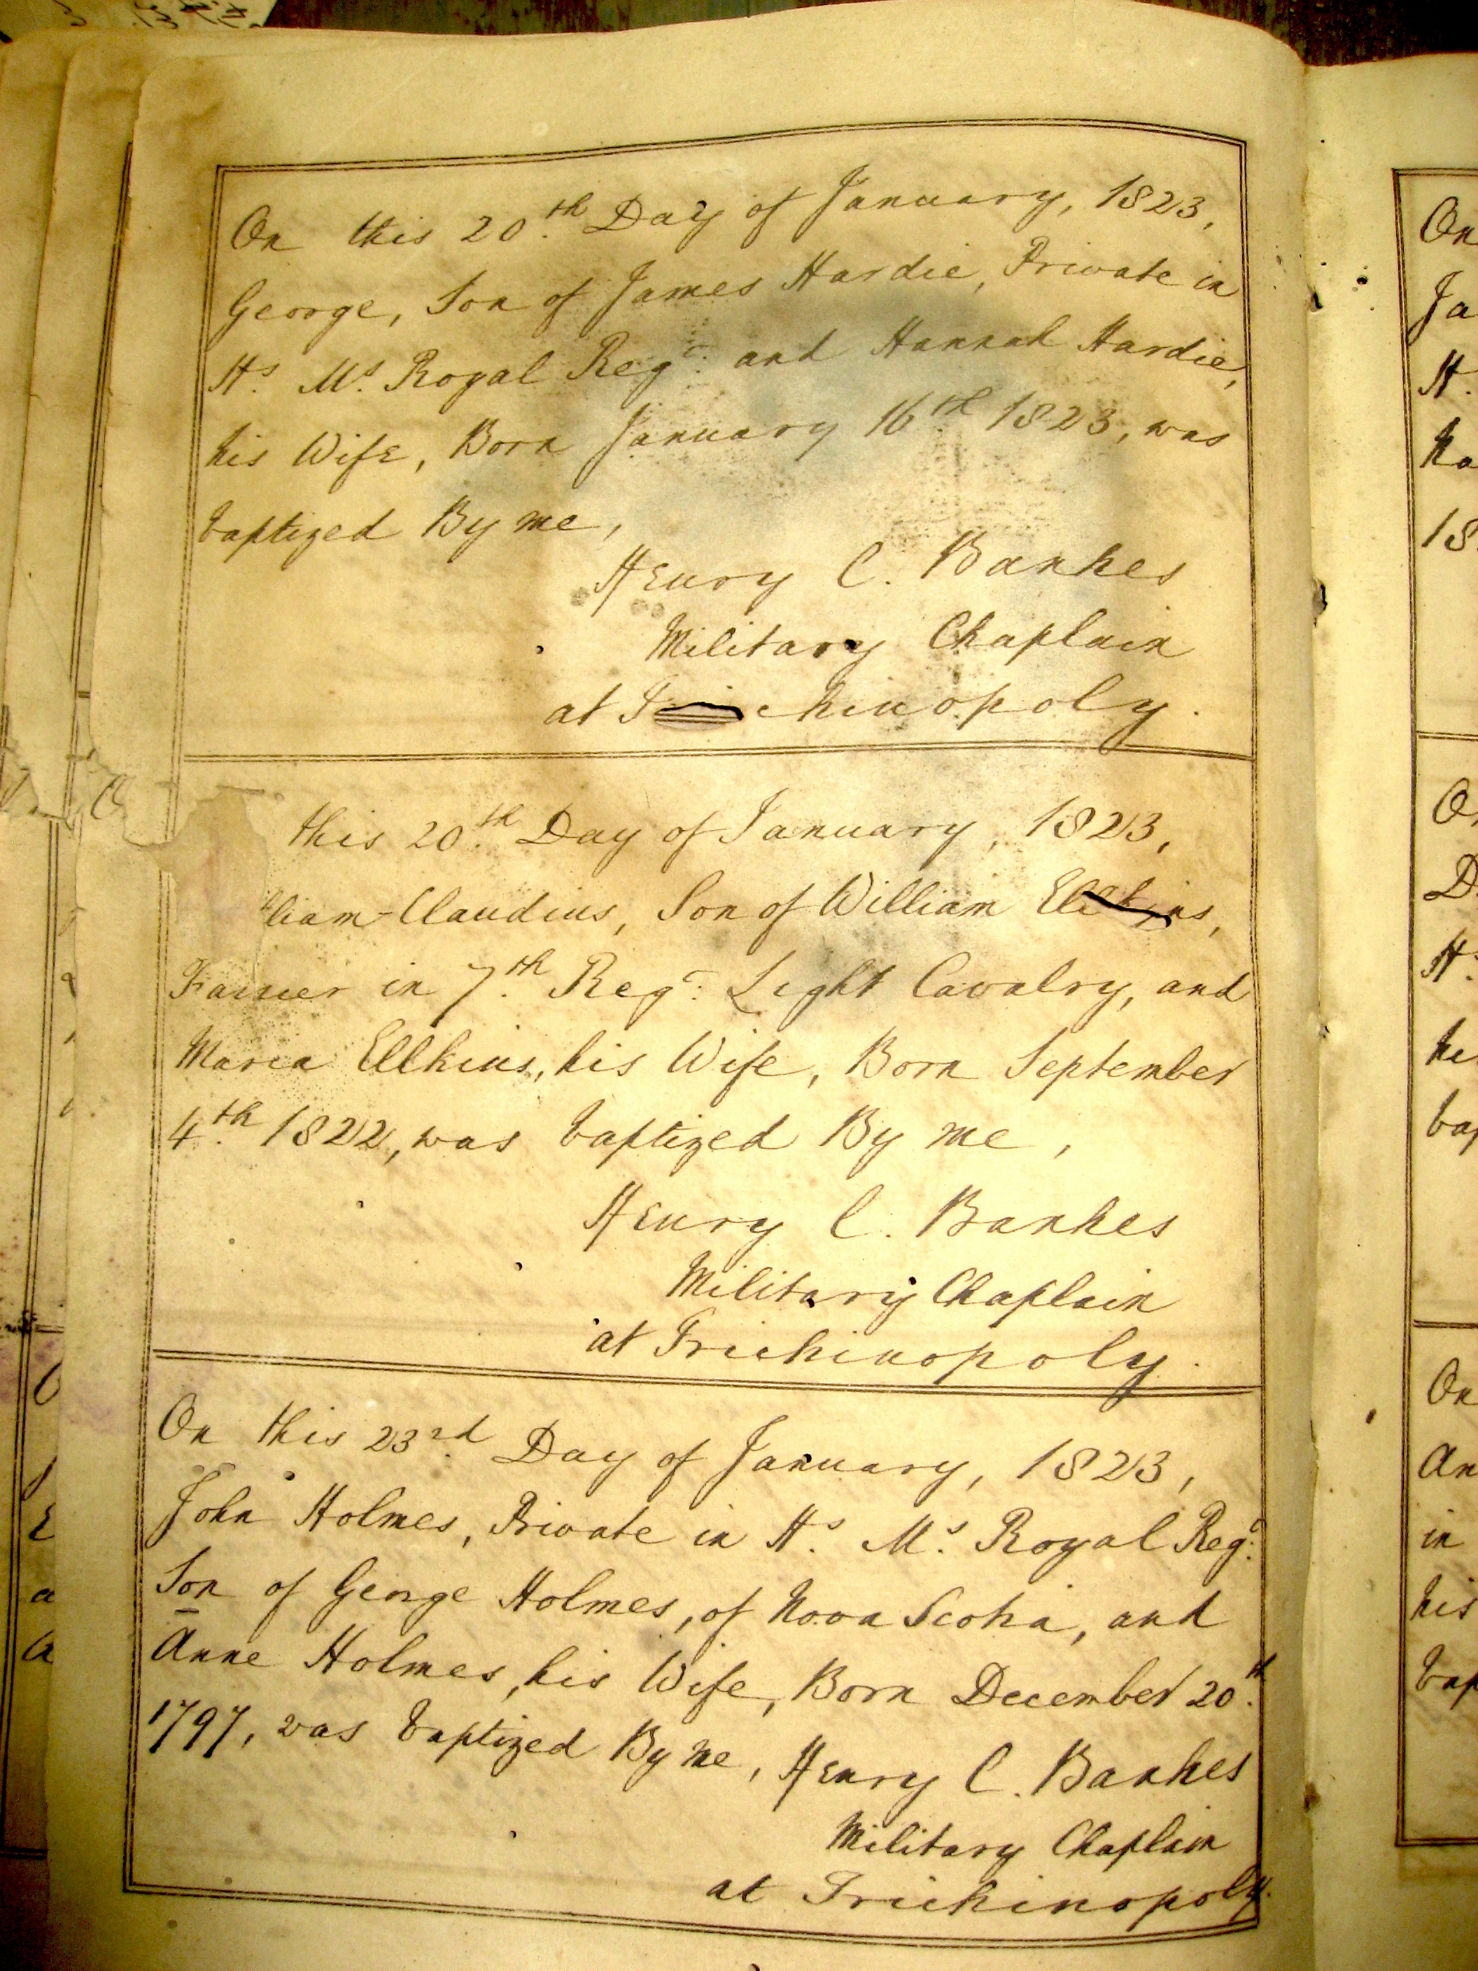 On this 20th Day of January, 1823,
George, Son of James Hardie, Private in
Hs. Ms. Royal Regt. and Hannah Hardie,
his Wife, Born January 16th 1823, was
baptized By me,
Henry C. Bankes
Military Chaplain
at Trichinopoly.
this 20th Day of January, 1823,
liam Claudius, Son of William Ellkins,
in 7th Regt. Light Cavalry, and
Maria Ellkins, his Wife, Born September
4th 1822, was baptized By me,
Henry C. Bankes
Military Chaplain
at Trichinopoly.
On this 23rd Day of January, 1823,
John Holmes, Private in Hs. Ms. Royal Regt.
Son of George Holmes, of Nova Scotia, and
Anne Holmes, his Wife, Born December 20th
1797, was baptized By me, Henry C. Bankes
Military Chaplain
at Trichinopoly.
On
Ja
H.
Ha
18
On
D
Hs
his
bap
On
An
in
his
bap